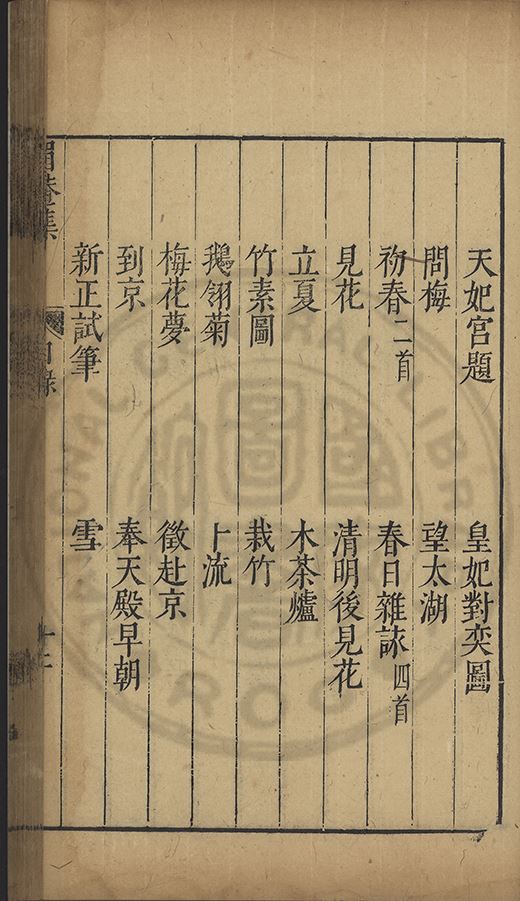 天妃宮題　皇妃對奕圖
問梅　望太湖
初春二首　春日雜詠四首
見花　清明後見花
立夏　木茶爐
竹素圖　栽竹
鵝翎菊　卜流
梅花夢　徵赴京
到京　奉天殿早朝
新正試筆　雪
眉菴集　目錄